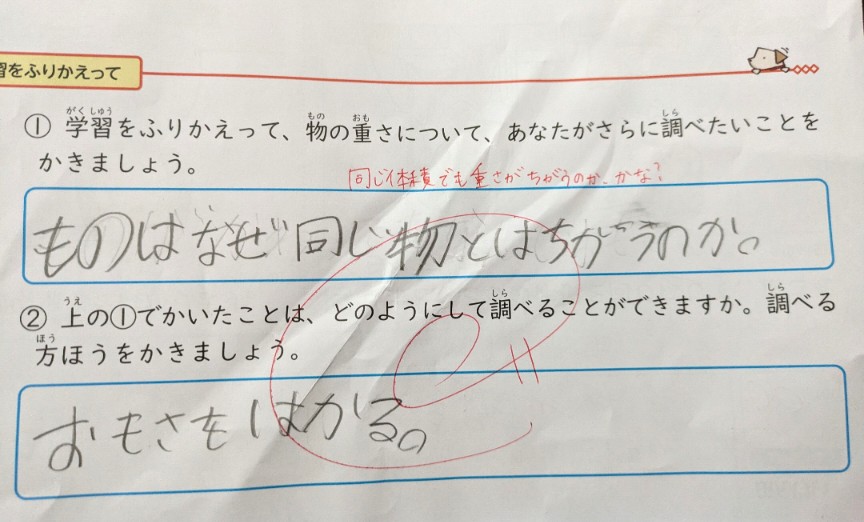 習をふりかえって
① 学習をふりかえって、物の重さについて、あなたがさらに調べたいことを
かきましょう。
同じ体積でも重さがちがうのか、かな？
ものはなぜ同じ物とはちがうのか。
② 上の①でかいたことは、どのようにして調べることができますか。調べる
方ほうをかきましょう。
おもさをはかる。